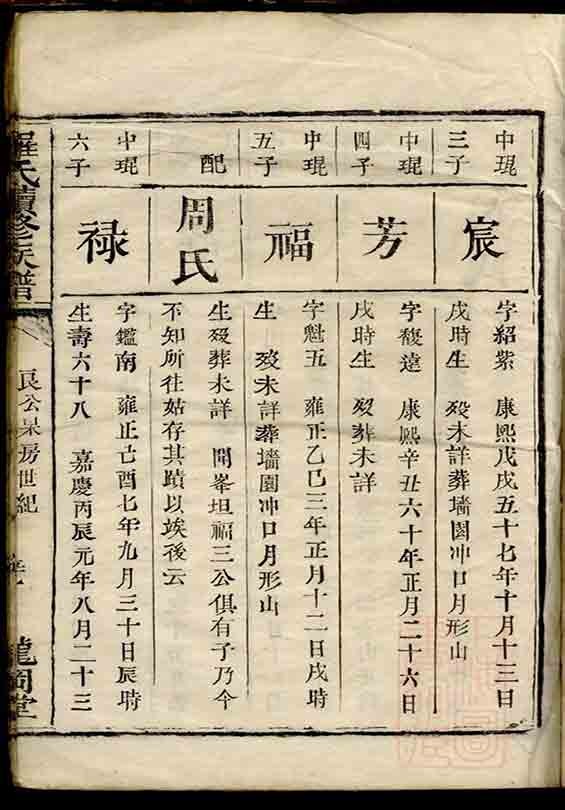 中琨
三子
宸
字紹紫 康熙戊戌五十七年十月十三日
戌時生 歿未詳葬墻園冲口月形山
中琨
四子
芳
字馥達 康熙辛丑六十年正月二十六日
戌時生 歿葬未詳
中琨
五子
福
字魁五 雍正乙巳三年正月十二日戌時
生 歿未詳葬墻園冲口月形山
配
周氏
生歿葬未詳 開峯坦福三公俱有子乃今
不知所往姑存其蹟以竢後云
中琨
六子
禄
字鑑南 雍正己酉七年九月三十日辰時
生壽六十八 嘉慶丙辰元年八月二十三
羅氏續修族譜
良公杲房世紀
龍岡堂